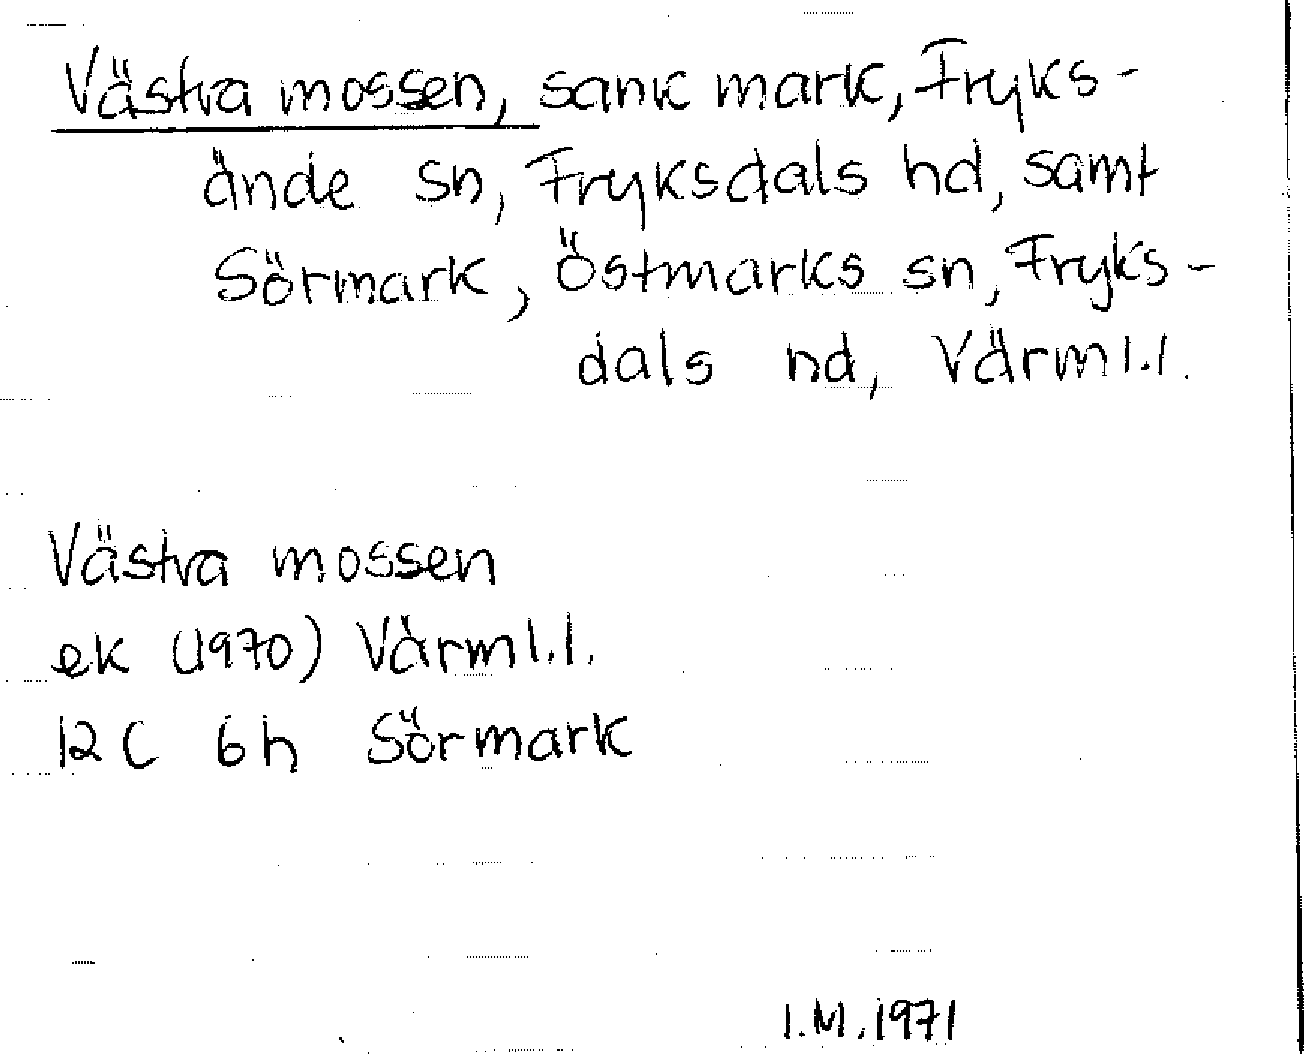 Västra mossen, sank mark, Fryks-
ände sn, Fryksdals hd, samt
Sörmark, Östmarks sn, Fryks-
dals hd, Värml.l.
Västra mossen
ek (1970) Värml.l.
12 C 6h Sörmark
I.M. 1971